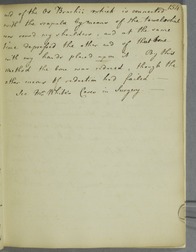 end of the Os Brachii which is connected
with the scapula by means of the towel
my shoulders, and at the same
time depressed the other end of that bone
with my hands placed upon it By this
method the bone was reduced, though the
other means of reduction had failed —
See Mr White's Cases in Surgery —